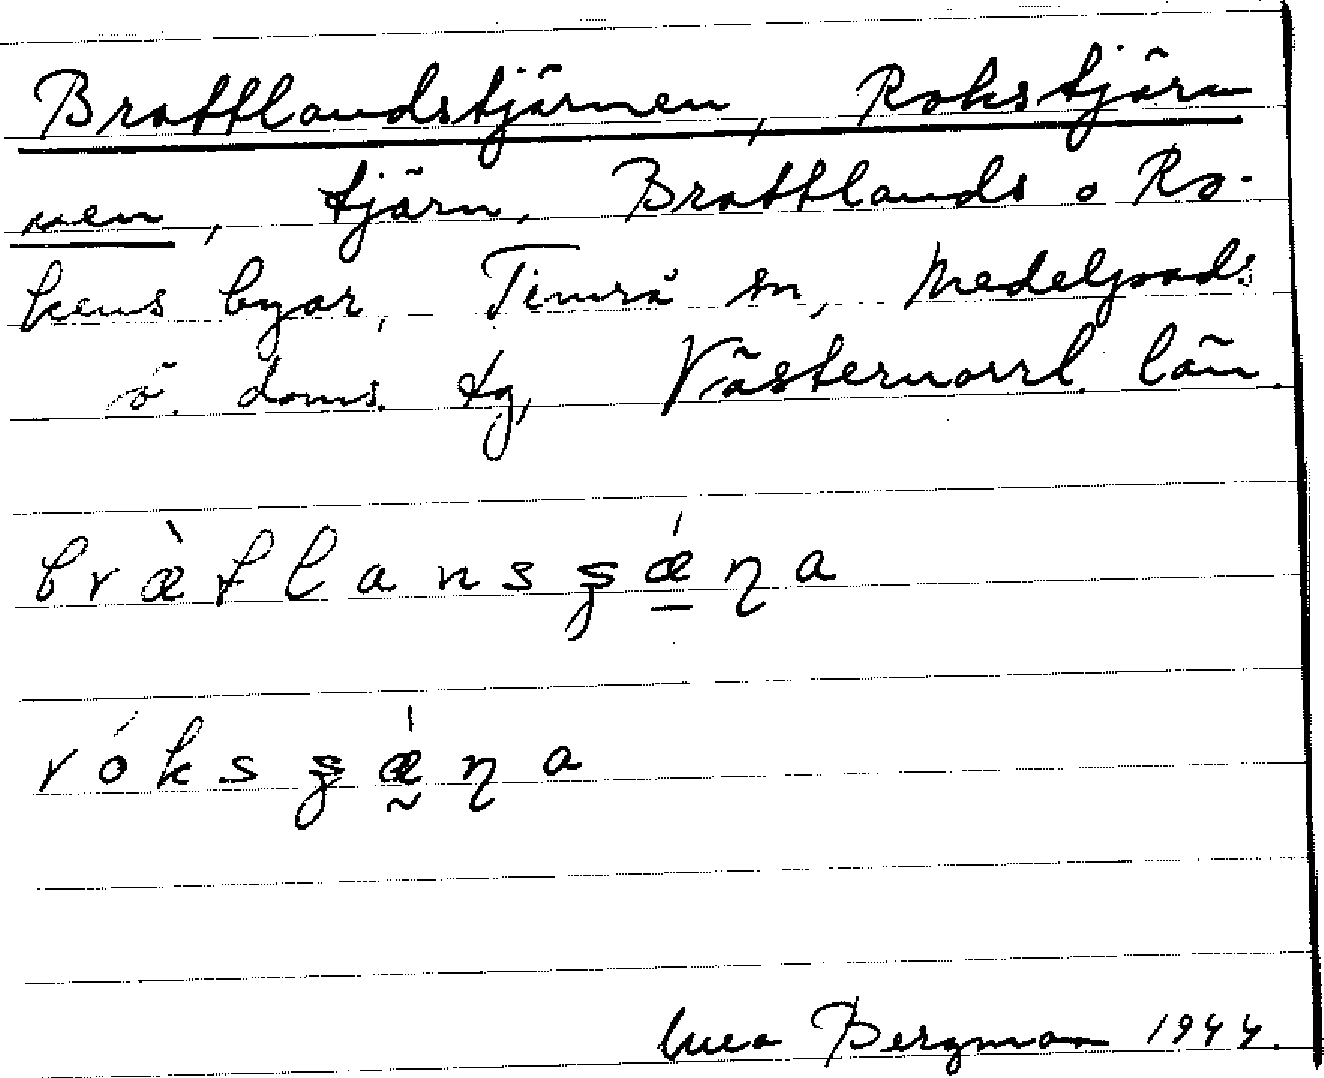 Brattlandstjärnen, Rokstjärn
nen, tjärn, Brattlands o Ro-
kens byar, Timrå sn, Medelpads
ö. doms. tg, Västernorrl. län.
bræ̀tlansʂǽ̱ɳa
róksʂǽ̰ɳa
Bergman 1944.